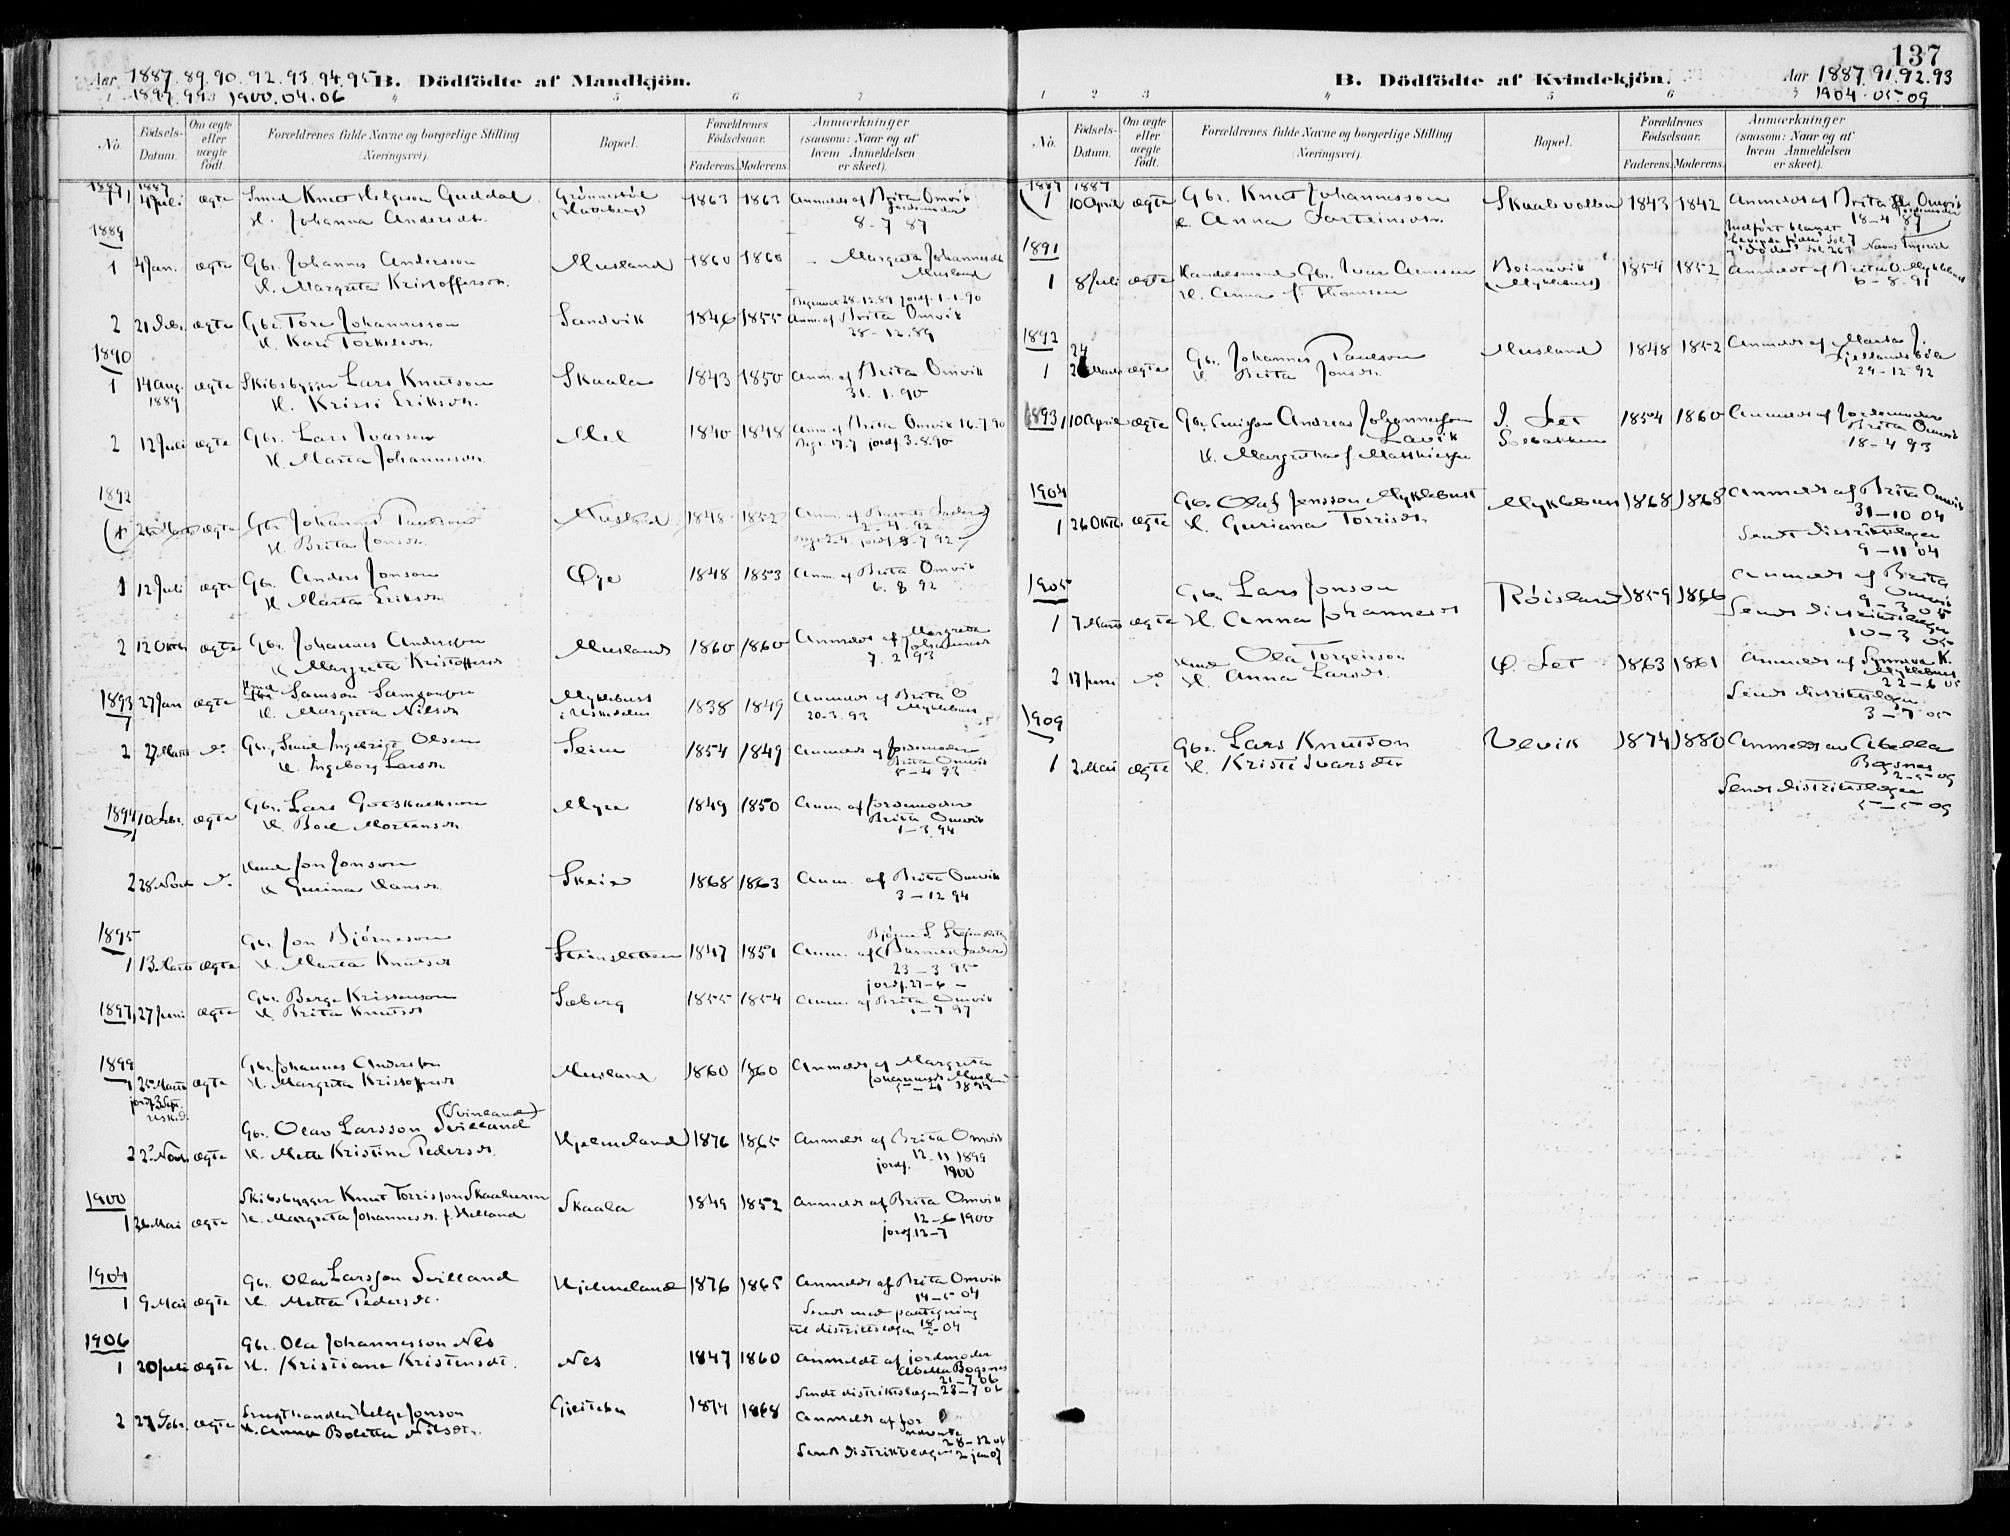 Aar 1887. 89. 90. 92. 93. 94. 95
1897. 99. 1900. 04. 06
B. Dödfödte af Mandkjön.
No. Födsels-Datum. Om ægte eller uægte födt. Forældrenes fulde Navne og borgerlige Stilling (Næringsvei). Bopæl. Forældrenes Födselsaar. Faderens. Moderens. Anmærkninger (saasom: Naar og af hvem Anmeldelsen er skeet).
1887
1 4 Juli ægte Smed Knut Helgeson Guddal Grønnestøl 1863 1863 Anmeldt af Brita Omvik
H. Johanna Andersdt. Jordmoder
8-7 87
1889
1 4 Jan. ægte Gbr. Johannes Andersson Musland 1860 1860 Margreta Johannesdt
H. Margreta Kristoffersdt. Musland
2 21 Dcbr. ægte Gbr. Tore Johannesson Sandvik 1846 1855 Anm. af Brita Omvik
H. Kari Torkelsdt. 28-12.89
1890
1 14 Aug. 1889 ægte Skibsbygger Lars Knutson Skaala 1843 1850 Anm. af Brita Omvik
H. Kristi Eriksdt. 31. 1. 90
2 12 Juli ægte Gbr. Lars Ivarson Mel 1840 1848 Anm. af Brita Omvik 16.7.90
H. Marta Johannesdt. jordf. 3.8.90
1892
Gbr. Johannes Paulson Musland 1848 1852
H. Brita Jonsdt. 2-4.92
1 12 Juli ægte Gbr. Anders Jonson Øye 1848 1853 Anm. af Brita Omvik
H. Marta Eriksdt. 6. 8 92
2 12 Oktbr ægte Gbr. Johannes Andersson Musland 1860 1860 Anmeldt af Margreta Johannesdt
H. Margreta Kristoffersdt 7. 2 93
1893
1 27 Jan ægte Samson Samsonson Myklebust 1838 1849 Anmeldt af Brita O Myklebust
H. Margreta Nilsdt i Uskedalen 20-3.93
2 27 Marts do. Gbr., Smed Ingebrigt Olsen Seim 1854 1849 Anmeldt af Jordemoder
H. Ingeborg Larsdt. Brita Omvik
5-4 93
1894
1 10 Febr. ægte Gbr. Lars Gotskalkson Myra 1849 1850 Anm. af Jordemoder
H. Boel Mortensdt. Brita Omvik
1-3.94
2 28 Novb do. Hmd Jon Jonson Skeie 1868 1863 Anm. af Brita Omvik
H. Gurina Hansdt. 3-12 94
1895
1 13 Marts ægte Gbr. Jon Bjørneson Steinsletten 1847 1851 Anm. af (Barnets Fader)
H. Marta Knutsdt 23-3 95
jordf. 27-6
1897
1 27 Juni ægte Gbr. Berge Kristenson Sæberg 1855 1854 Anm. af Brita Omvik
H. Brita Knutsdt 1-7 97
1899
1 25 Marts ægte Gbr. Johannes Anderson Musland 1860 1860 Anmeldt af Margreta
H. Margreta Kristoffersdt Johannesdt Musland
2 2 Novb. ægte Gbr. Olav Larsson Svilland (Svinland) Hjelmeland 1876 1865 Anmeldt af Brita Omvik
H. Mette Kristine Pedersdt. 12-11 1899
jordf. 1900
1900
1 26 Mai ægte Skibsbygger Knut Torrisson Skaaluren Skaala 1849 1852 Anmeldt af Brita Omvik
H. Margreta Johannesdt. f. Helland 12-6 1900
jordf. 13-7
1904
1 9 Mai ægte Gbr. Olav Larsson Svilland Hjelmeland 1876 1865 Anmeldt af Brita Omvik
H. Metta Pedersdt. 14-5 04
Sendt med paategning
til distriktslægen 18/5 04
1906
1 20 Juli ægte Gbr. Ola Johannesson Nes Nes 1847 1860 Anmeldt af jordmoder
H. Kristiane Kristensdt. Abella Bogsnes
21-7 06
Sendt distriktslægen 23-7 06
2 27 Dcbr. ægte Helge Jonson 1874 1868 Anmeldt af
H. Anna Boletta Nilsdt. 28-12 06
Sendt distriktslægen 2 jan 07
137
B. Dödfödte af Kvindekjön.
Aar 1887. 91. 92. 93
1904. 05. 09
No. Födsels-Datum. Om ægte eller uægte födt. Forældrenes fulde Navne og borgerlige Stilling (Næringsvei). Bopæl. Forældrenes Födselsaar. Faderens. Moderens. Anmærkninger (saasom: Naar og af hvem Anmeldelsen er skeet).
1887
1 10 April ægte Gbr. Knut Johannesson Skaalevollen 1843 1842 Anmeldt af Brita Omvik
H. Anna Torteinsdt. 18-4 87
1891
1 8 Juli ægte Handelsmand Gbr. Ivar Arnesen (Myklebust) 1854 1852 Anmeldt af Brita O. Myklebust
H. Anna f. Thomsen 6-8-91
1892
1 24 Marts ægte Gbr. Johannes Paulson Musland 1848 1852 Anmeldt af Marta J.
H. Brita Jonsdt. 29-12 92
1893
1 10 April ægte Andreas Johannesson Lavik I. Set 1854 1860 Anmeldt af Jordemoder
H. Margretha f Matthiesen Brita Omvik
18-4 93
1904
1 26 Oktbr. ægte Gbr. Olaf Jensson Myklebust Myklebust 1868 1868 Anmeldt af Brita Omvik
H. Guriana Torrisdt. 31-10 04
Sendt distriktslægen
9-11 04
1905
1 7 Marts ægte Gbr. Lars Jonson Røisland 1859 1866 Anmeldt af Brita Omvik
H. Anna Johannesdt 9-3 05
Sendt distriktslægen
10-3 05
2 17 Juni do. Hmd Ola Torgeirson Ø. Set 1863 1861 Anmeldt af Synneva K. Myklebust
H. Anna Larsdt. 22-6 05
Sendt distriktslægen
3-7 05
1909
1 2 Mai ægte Gbr. Lars Knutson Ulvik 1874 1880 Anmeldt av Abella Bogsnes
H. Kristi Ivarsdt. 2-5 09
Sendt distriktslægen
5-5 09